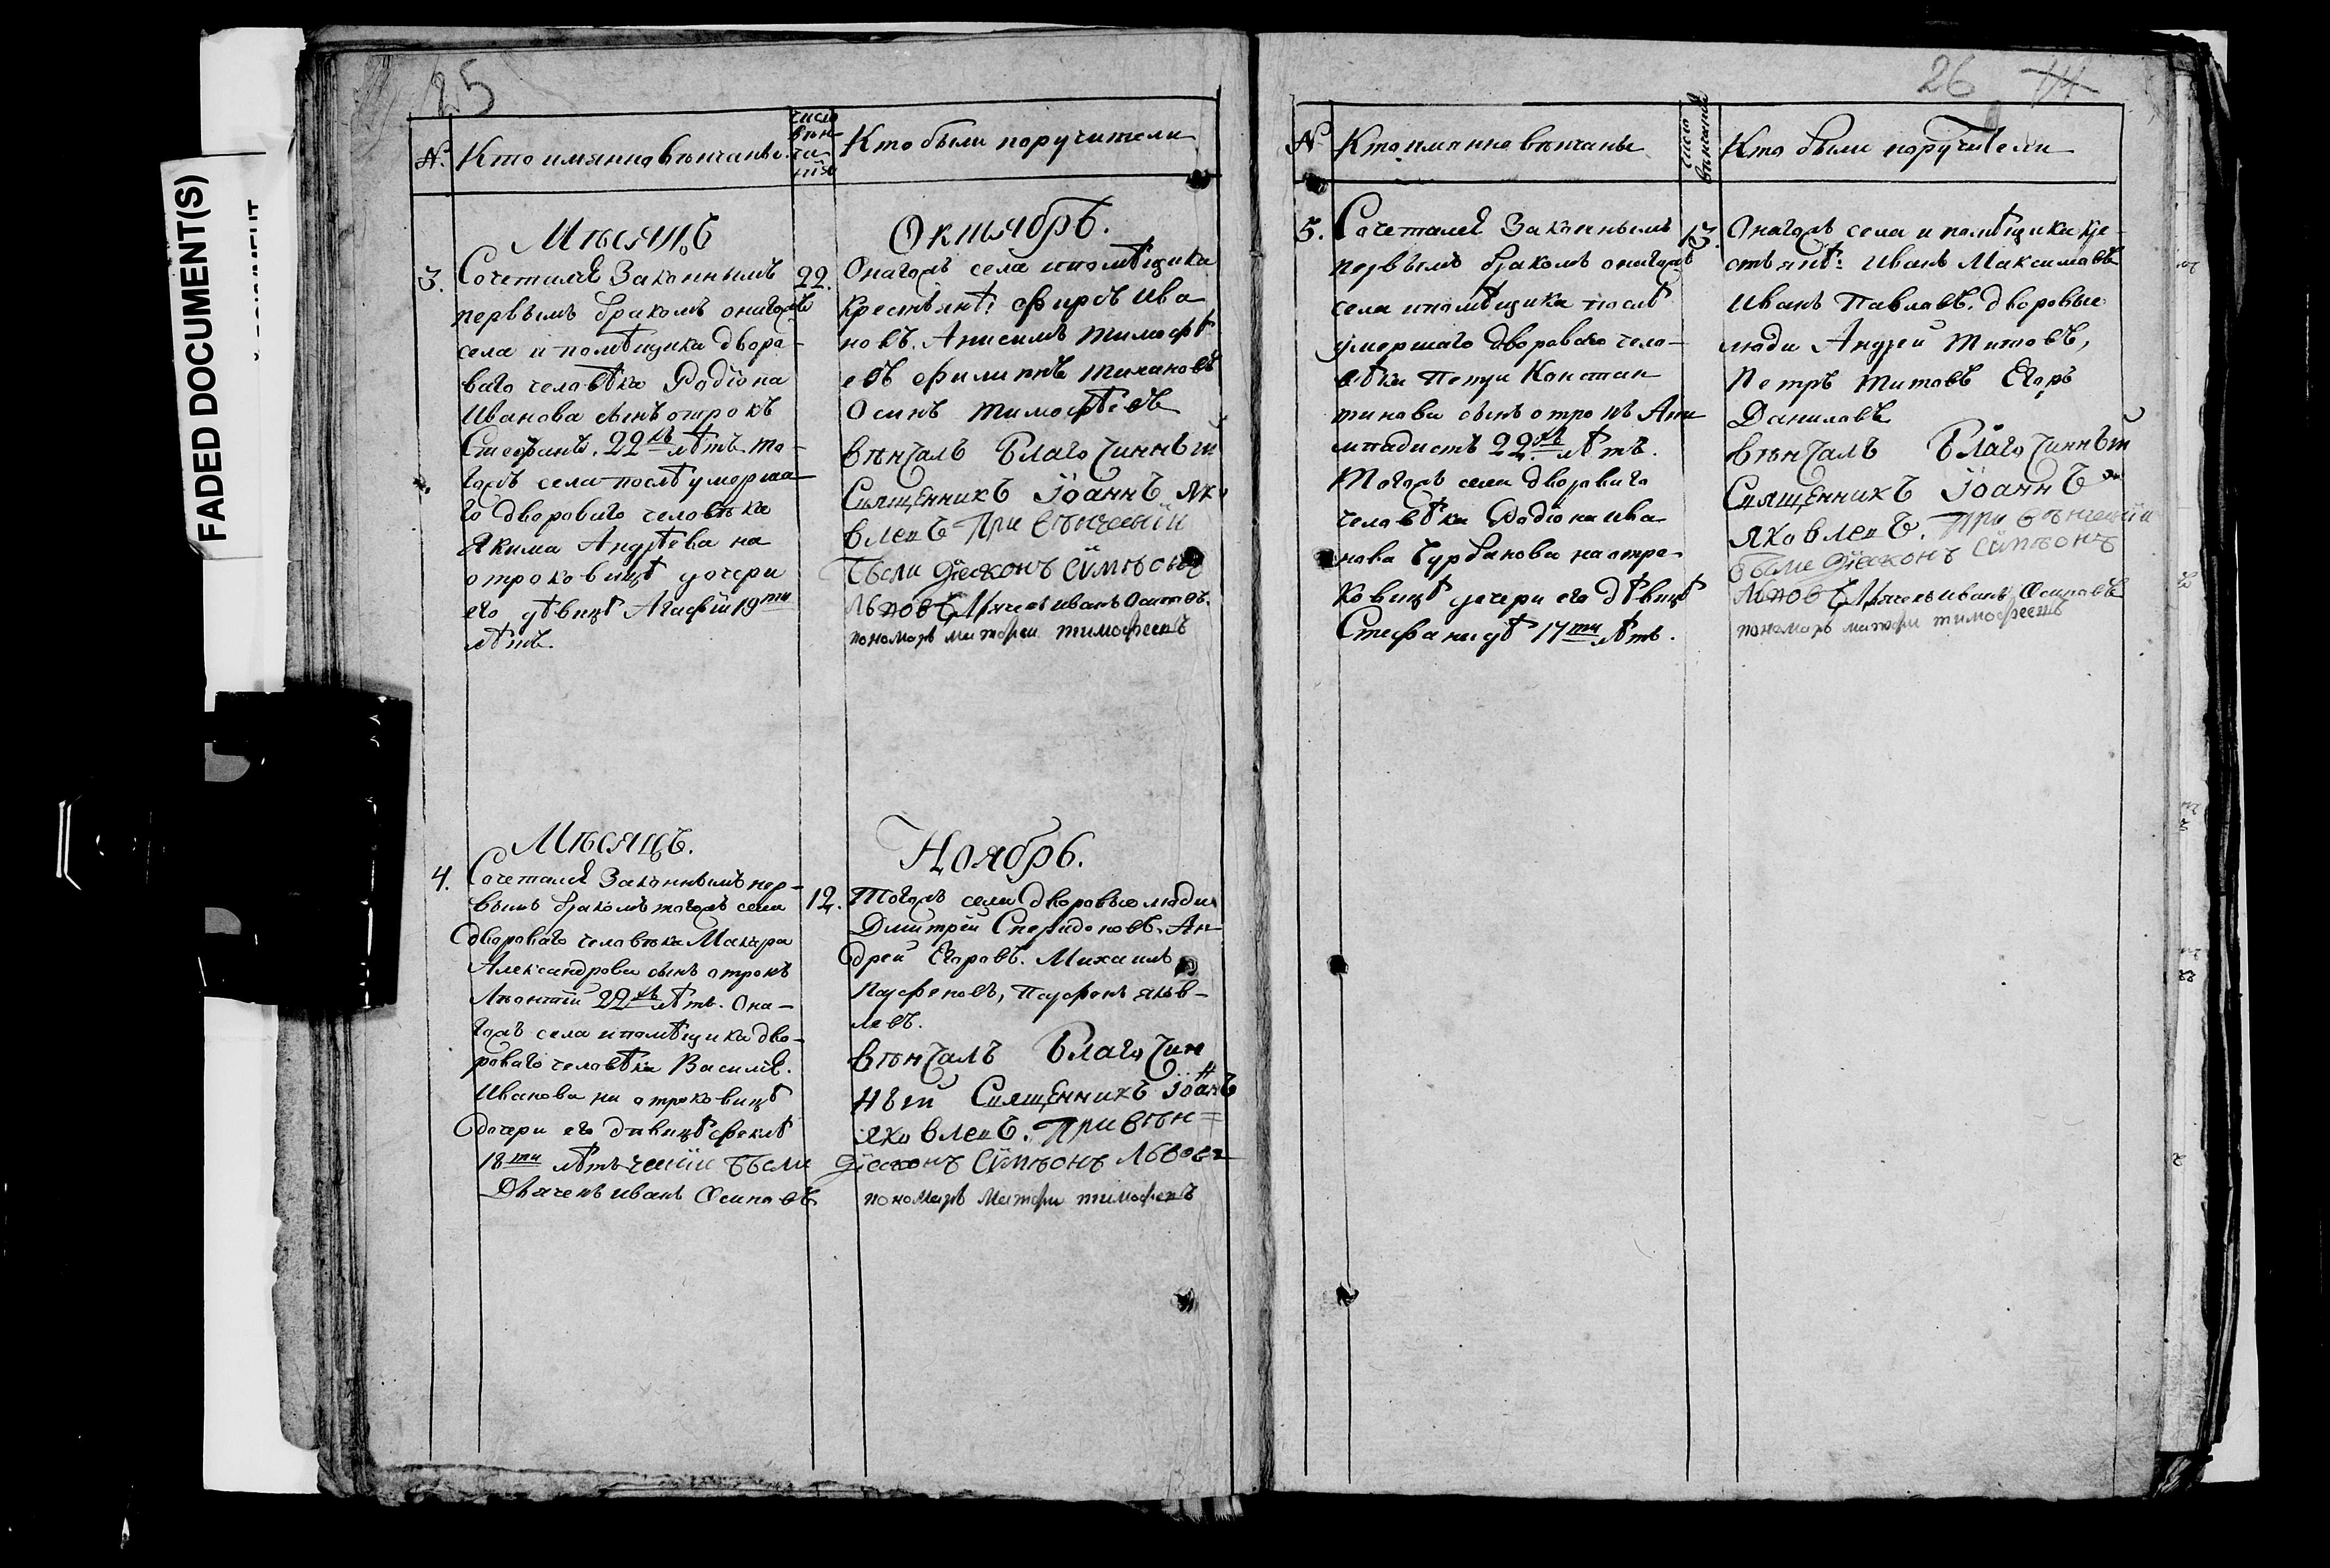 FADED DOCUMENT(S)
25
№.
Кто имянно вѣнчаны.
число
вѣн-
ча-
нїя
Кто были поручители
Мѣсяцъ
Октябрь.
3.
Сочетался Законнымъ
первымъ бракомъ онагожъ
села и помѣщика дворо-
ваго человѣка Родїона
Иванова сынъ отрокъ
Стефанъ. 22хъ лѣтъ. то-
гожъ села послѣ умерша-
го двороваго человѣка
Якима Андрѣева на
отроковицѣ дочери
его дѣвицѣ Агафїи 19ти
лѣтъ.
22.
Онагожъ села и помѣщика
крестьянѣ: Фирсъ Ива
новъ. Анисимъ Тимофѣ
евъ Филиппъ Тихановъ
Осипъ Тимофѣевъ
вѣнчалъ Благочинный
Священникъ Іоаннъ Яко
влевъ При вѣнчанїи
были дїаконъ Сѵмеонъ
Львовъ, Дьячекъ иванъ Осиповъ.
пономарь матфеи тимофеевъ
Мѣсяцъ.
Ноябрь.
4.
Сочетался Законнымъ пер-
вымъ бракомъ тогожъ села
двороваго человѣка Макара
Александрова сынъ отрокъ
Леонтїй 22хъ лѣтъ. Она-
гожъ села и помѣщика дво-
роваго человѣка Василїя
Иванова на отроковицѣ
дочери его дѣвицѣ Феклѣ
18ти лѣтъ
12.
Тогожъ села дворовые люди
Дмитрїй Спиридоновъ. Ан-
дрей Егоровъ. Михаилъ
Парфеновъ, Парфенъ яков-
левъ.
вѣнчалъ Благочин
ный Священникъ Іоаннъ
Яковлевъ. При вѣн=
чанїи были дїаконъ Сѵмеонъ Львовъ
Дьячекъ иванъ Осиповъ пономарь матфеи тимофеевъ
26 14
№
Кто имянно вѣнчаны
число
вѣнчанїя
Кто были поручители
5.
Сочетался Законнымъ
первымъ бракомъ онагожъ
села и помѣщика послѣ
умершаго двороваго чело-
вѣка Петра Констан
тинова сынъ отрокъ
22хъ лѣтъ.
Тогожъ села двороваго
человѣка Родїона ива
нова Бурбанова на отро-
ковицѣ дочери его дѣвицѣ
Стефанидѣ 17ти лѣтъ.
13.
Онагожъ села и помѣщика кре-
стьянѣ: Иванъ Максимовъ
Иванъ Павловъ. дворовые
люди Андрей Титовъ,
Петръ Титовъ Егоръ
Даниловъ
вѣнчалъ Благочинный
Священникъ Іоаннъ
Яковлевъ. При вѣнчанїи
были дїаконъ Сѵмеонъ
Львовъ, Дьячекъ иванъ Осиповъ
пономарь матфеи тимофеевъ